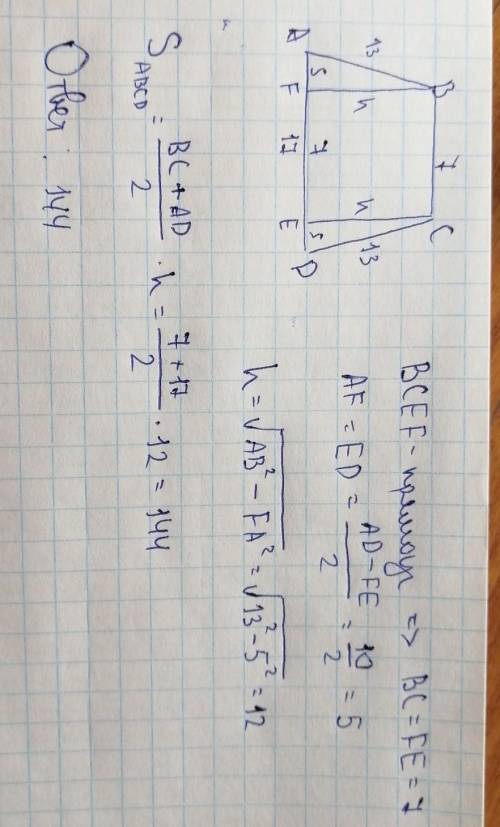 B 7 C
13 h h 13
A 5 F 7 E 5 D
17
BCEF - прямоуг => BC = FE = 7
AF = ED = \frac{AD - FE}{2} = \frac{10}{2} = 5
h = \sqrt{AB² - FA²} = \sqrt{13² - 5²} = 12
S_{ABCD} = \frac{BC + AD}{2} · h = \frac{7 + 17}{2} · 12 = 144
Ответ: 144